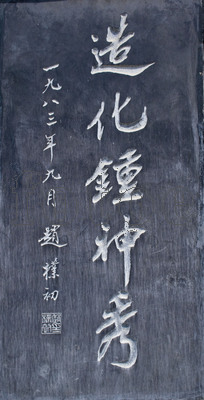 造化鍾神秀
一九八三年九月 趙樸初